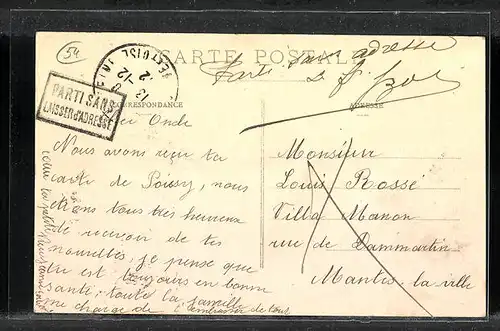 54
CARTE POSTALE
Parti sans adresse
PARTI SANS
LAISSER D'ADRESSE
CORRESPONDANCE
ADRESSE
Onde
Nous avons reçu ta
carte de Poissy, nous
étions tous très heureux
de recevoir de tes
nouvelles, je pense que
est toujours en bonne
santé, toute la famille
me charge de t'embrasser de tout
Monsieur
Louis Rossé
Villa Manon
rue de Dammartin
Mantes la ville